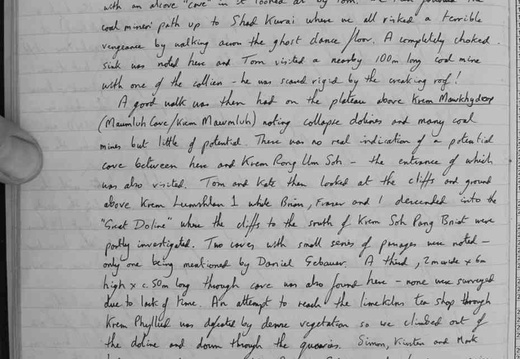 with an above "cave" in it looked at by Tom. We then followed the
coal miners path up to Shed Kurai where we all risked a terrible
vengeance by walking across the ghost dance floor. A completely choked
sink was noted here and Tom visited a nearby 100m long coal mine
with one of the colliers - he was scared rigid by the creaking roof!
A good walk was then had on the plateau above Krem Mawkhyrdop
(Mawmluh Cave/Krem Mawmluh) noting collapse dolines and many coal
mines but little of potential. There was no real indication of a potential
cave between here and Krem Rong Um Soh - the entrance of which
was also visited. Tom and Kate then looked at the cliffs and ground
above Krem Lumshlan 1 while Brian, Fraser and I descended into the
"Great Doline" where the cliffs to the south of Krem Soh Pang Bniat were
partly investigated. Two caves with small series of passages were noted -
only one being mentioned by Daniel Gebauer. A third, 2m wide x 6m
high x c.50m long through cave was also found here - none were surveyed
due to lack of time. An attempt to reach the limekilns tea shop through
Krem Phyllut was defeated by dense vegetation so we climbed out of
the doline and down through the quarries. Simon, Kirsten and Mark